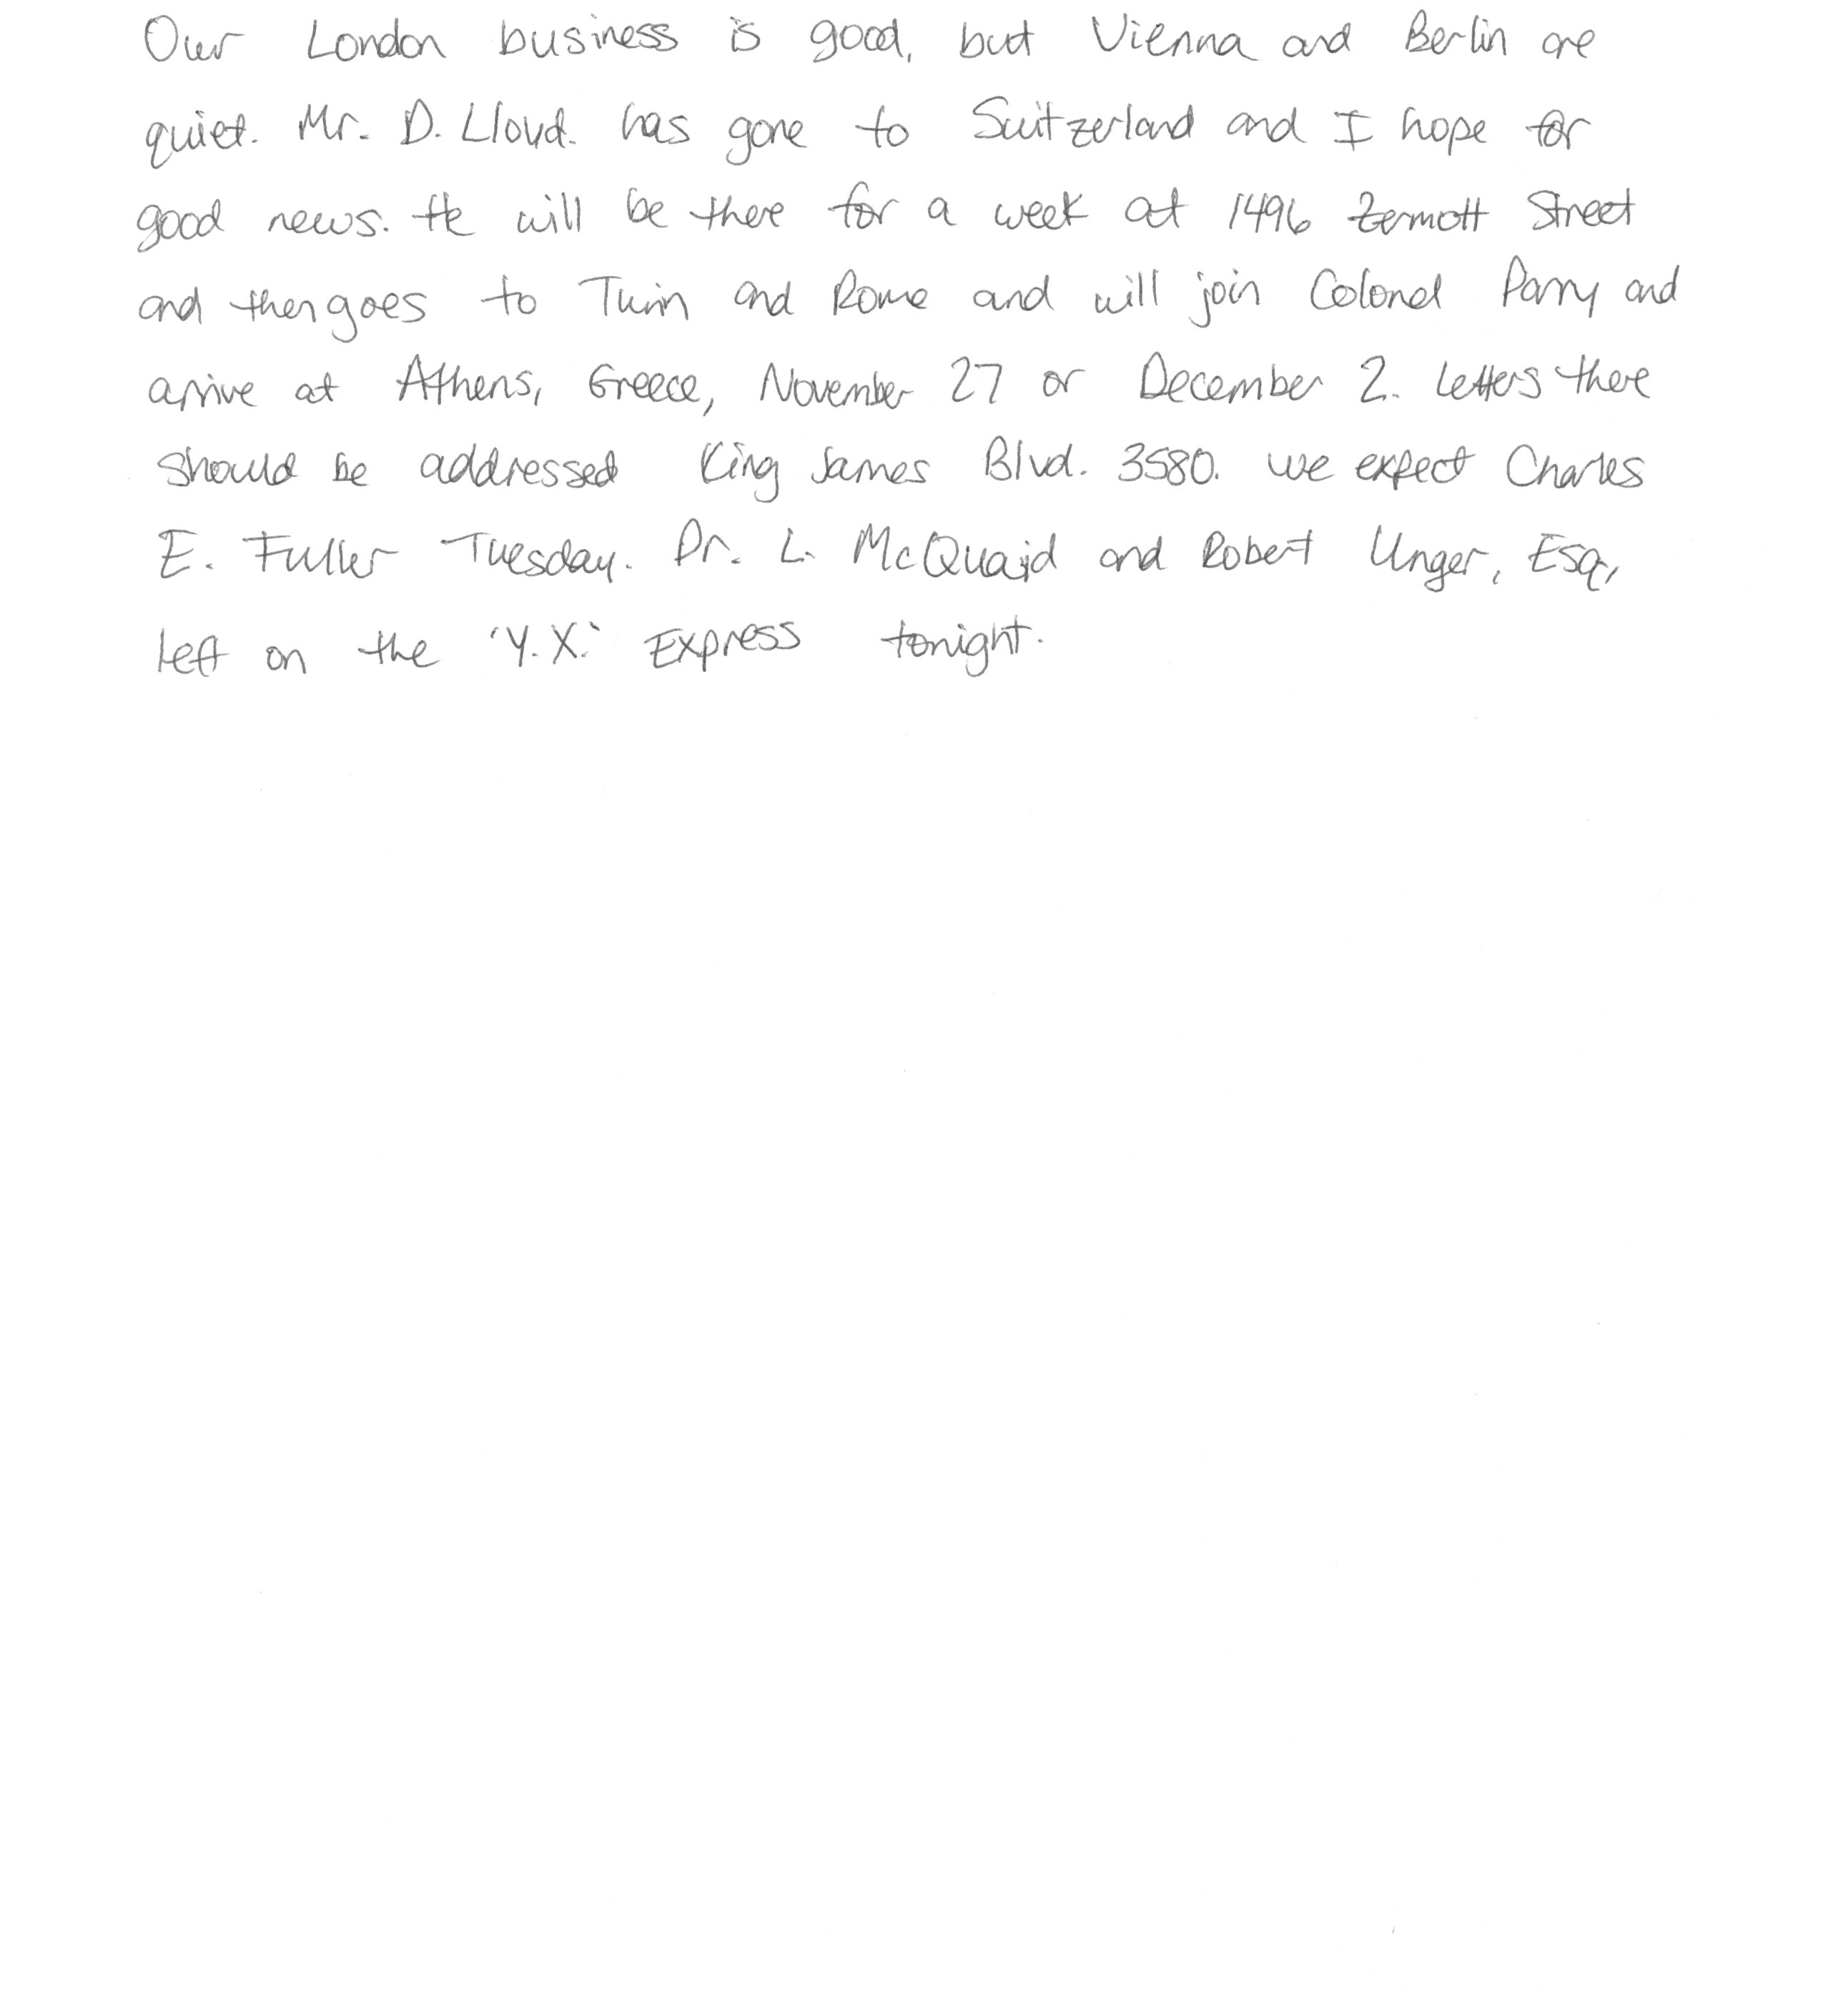 Our London business is good, but Vienna and Berlin are
quiet. Mr. D. Lloyd. has gone to Switzerland and I hope for
good news. He will be there for a week at 1496 Zermott Street
and then goes to Turin and Rome and will join Colonel Parry and
arrive at Athens, Greece, November 27 or December 2. Letters there
should be addressed King James Blvd. 3580. We expect Charles
E. Fuller Tuesday. Dr. L. McQuaid and Robert Unger, Esq,
left on the 'Y.X.' Express tonight.